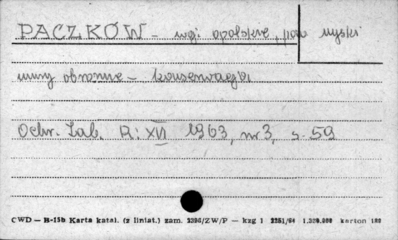 PACZKÓW – woj. opolskie, pow nyski
mury obronne – konserwacja
Ochr. Zab. R: XVI 1963, nr 3, s. 59
CWD — B-15b Karta katal. (z liniat.) zam. 2386/ZW/P — kzg 1 2251/64 1,320.000 karton 180